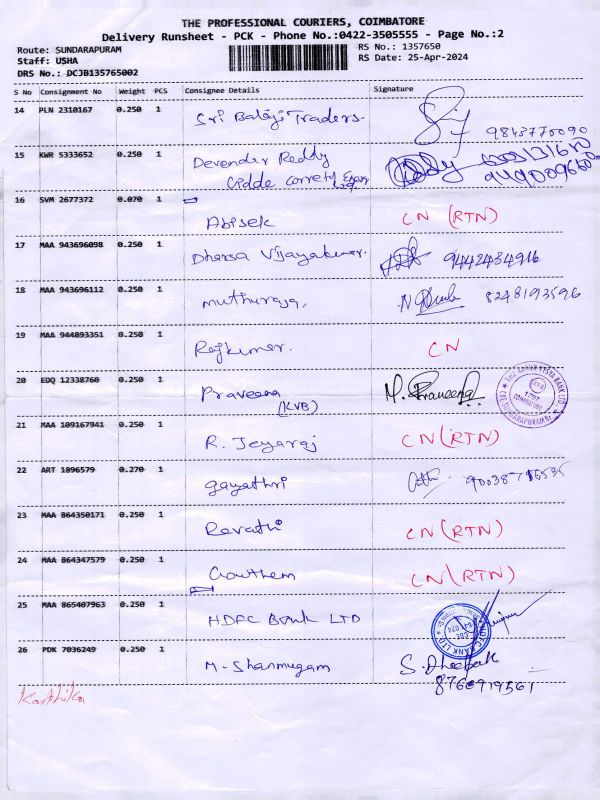 THE PROFESSIONAL COURIERS, COIMBATORE
Delivery Runsheet - PCK - Phone No.:0422-3505555 - Page No.:2
Route: SUNDARAPURAM
RS No.: 1357650
Staff: USHA
RS Date: 25-Apr-2024
DRS No.: DCJB135765002
S No Consignment No Weight PCS Consignee Details Signature
14 PLN 2310167 0.250 1 Sri Balaji Traders. 9843770090
15 KWR 5333652 0.250 1 Devender Reddy
16 SVM 2677372 0.070 1 Abisek CN (RTN)
17 MAA 943696098 0.250 1 Dharsa Vijayakumar. 9442434916
18 MAA 943696112 0.250 1 muthuraja, 8248193596
19 MAA 944893351 0.250 1 Rajkumar. CN
20 EDQ 12338760 0.250 1 Praveena M. Praveena
(KVB)
21 MAA 109167941 0.250 1 R. Jeyaraj CN (RTN)
22 ART 1896579 0.270 1 gayathri
23 MAA 864350171 0.250 1 Revathi CN (RTN)
24 MAA 864347579 0.250 1 Gouthem CN (RTN)
25 MAA 865407963 0.250 1 HDFC Bank LTD
26 PDK 7036249 0.250 1 M. Shanmugam S. Dheepak
8760919561
Karthika